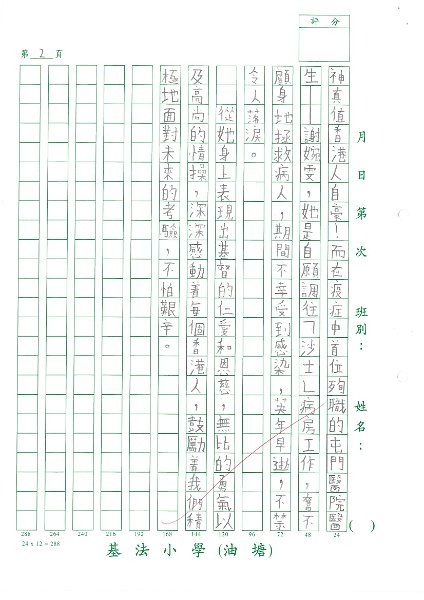 評分
第2頁
月 日 第 次 班別： 姓名： （ ）
神真值香港人自豪！而在疫症中首位殉職的屯門醫院醫
生——謝婉雯，她是自願調往「沙士」病房工作，奮不
顧身地拯救病人，期間不幸受到感染，英年早逝，不禁
令人落淚。
從她身上表現出基督的仁愛和恩慈，無比的勇氣以
及高尚的情操，深深感動着每個香港人，鼓勵着我們積
極地面對未來的考驗，不怕艱辛。
288 264 240 216 192 168 144 120 96 72 48 24
24 x 12 = 288
基法小學（油塘）